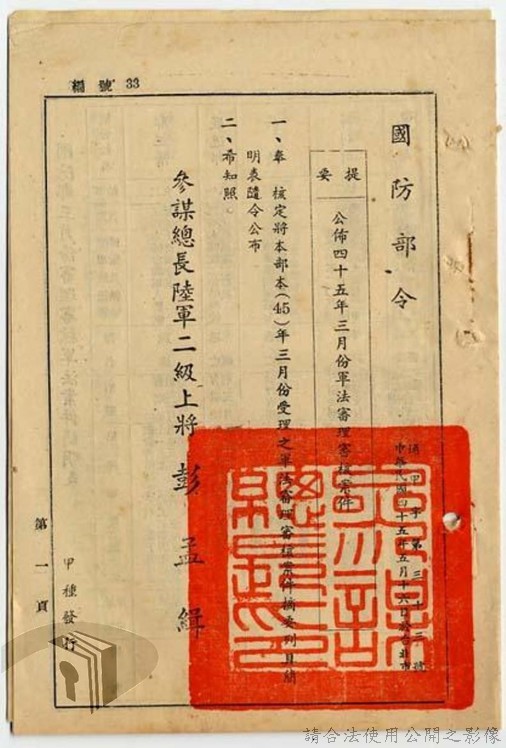 欄號 33
國防部令
清甲字第三十三號
中華民國四十五年五月十六日於台北市
提要
公佈四十五年三月份軍法審理審核案件
一、奉 核定將本部本(45)年三月份受理之軍法審理審核案件摘要列具簡
明表隨令公布
二、希知照
參謀總長陸軍二級上將彭孟緝
參謀總長之印
甲種發行
第一頁
請合法使用公開之影像